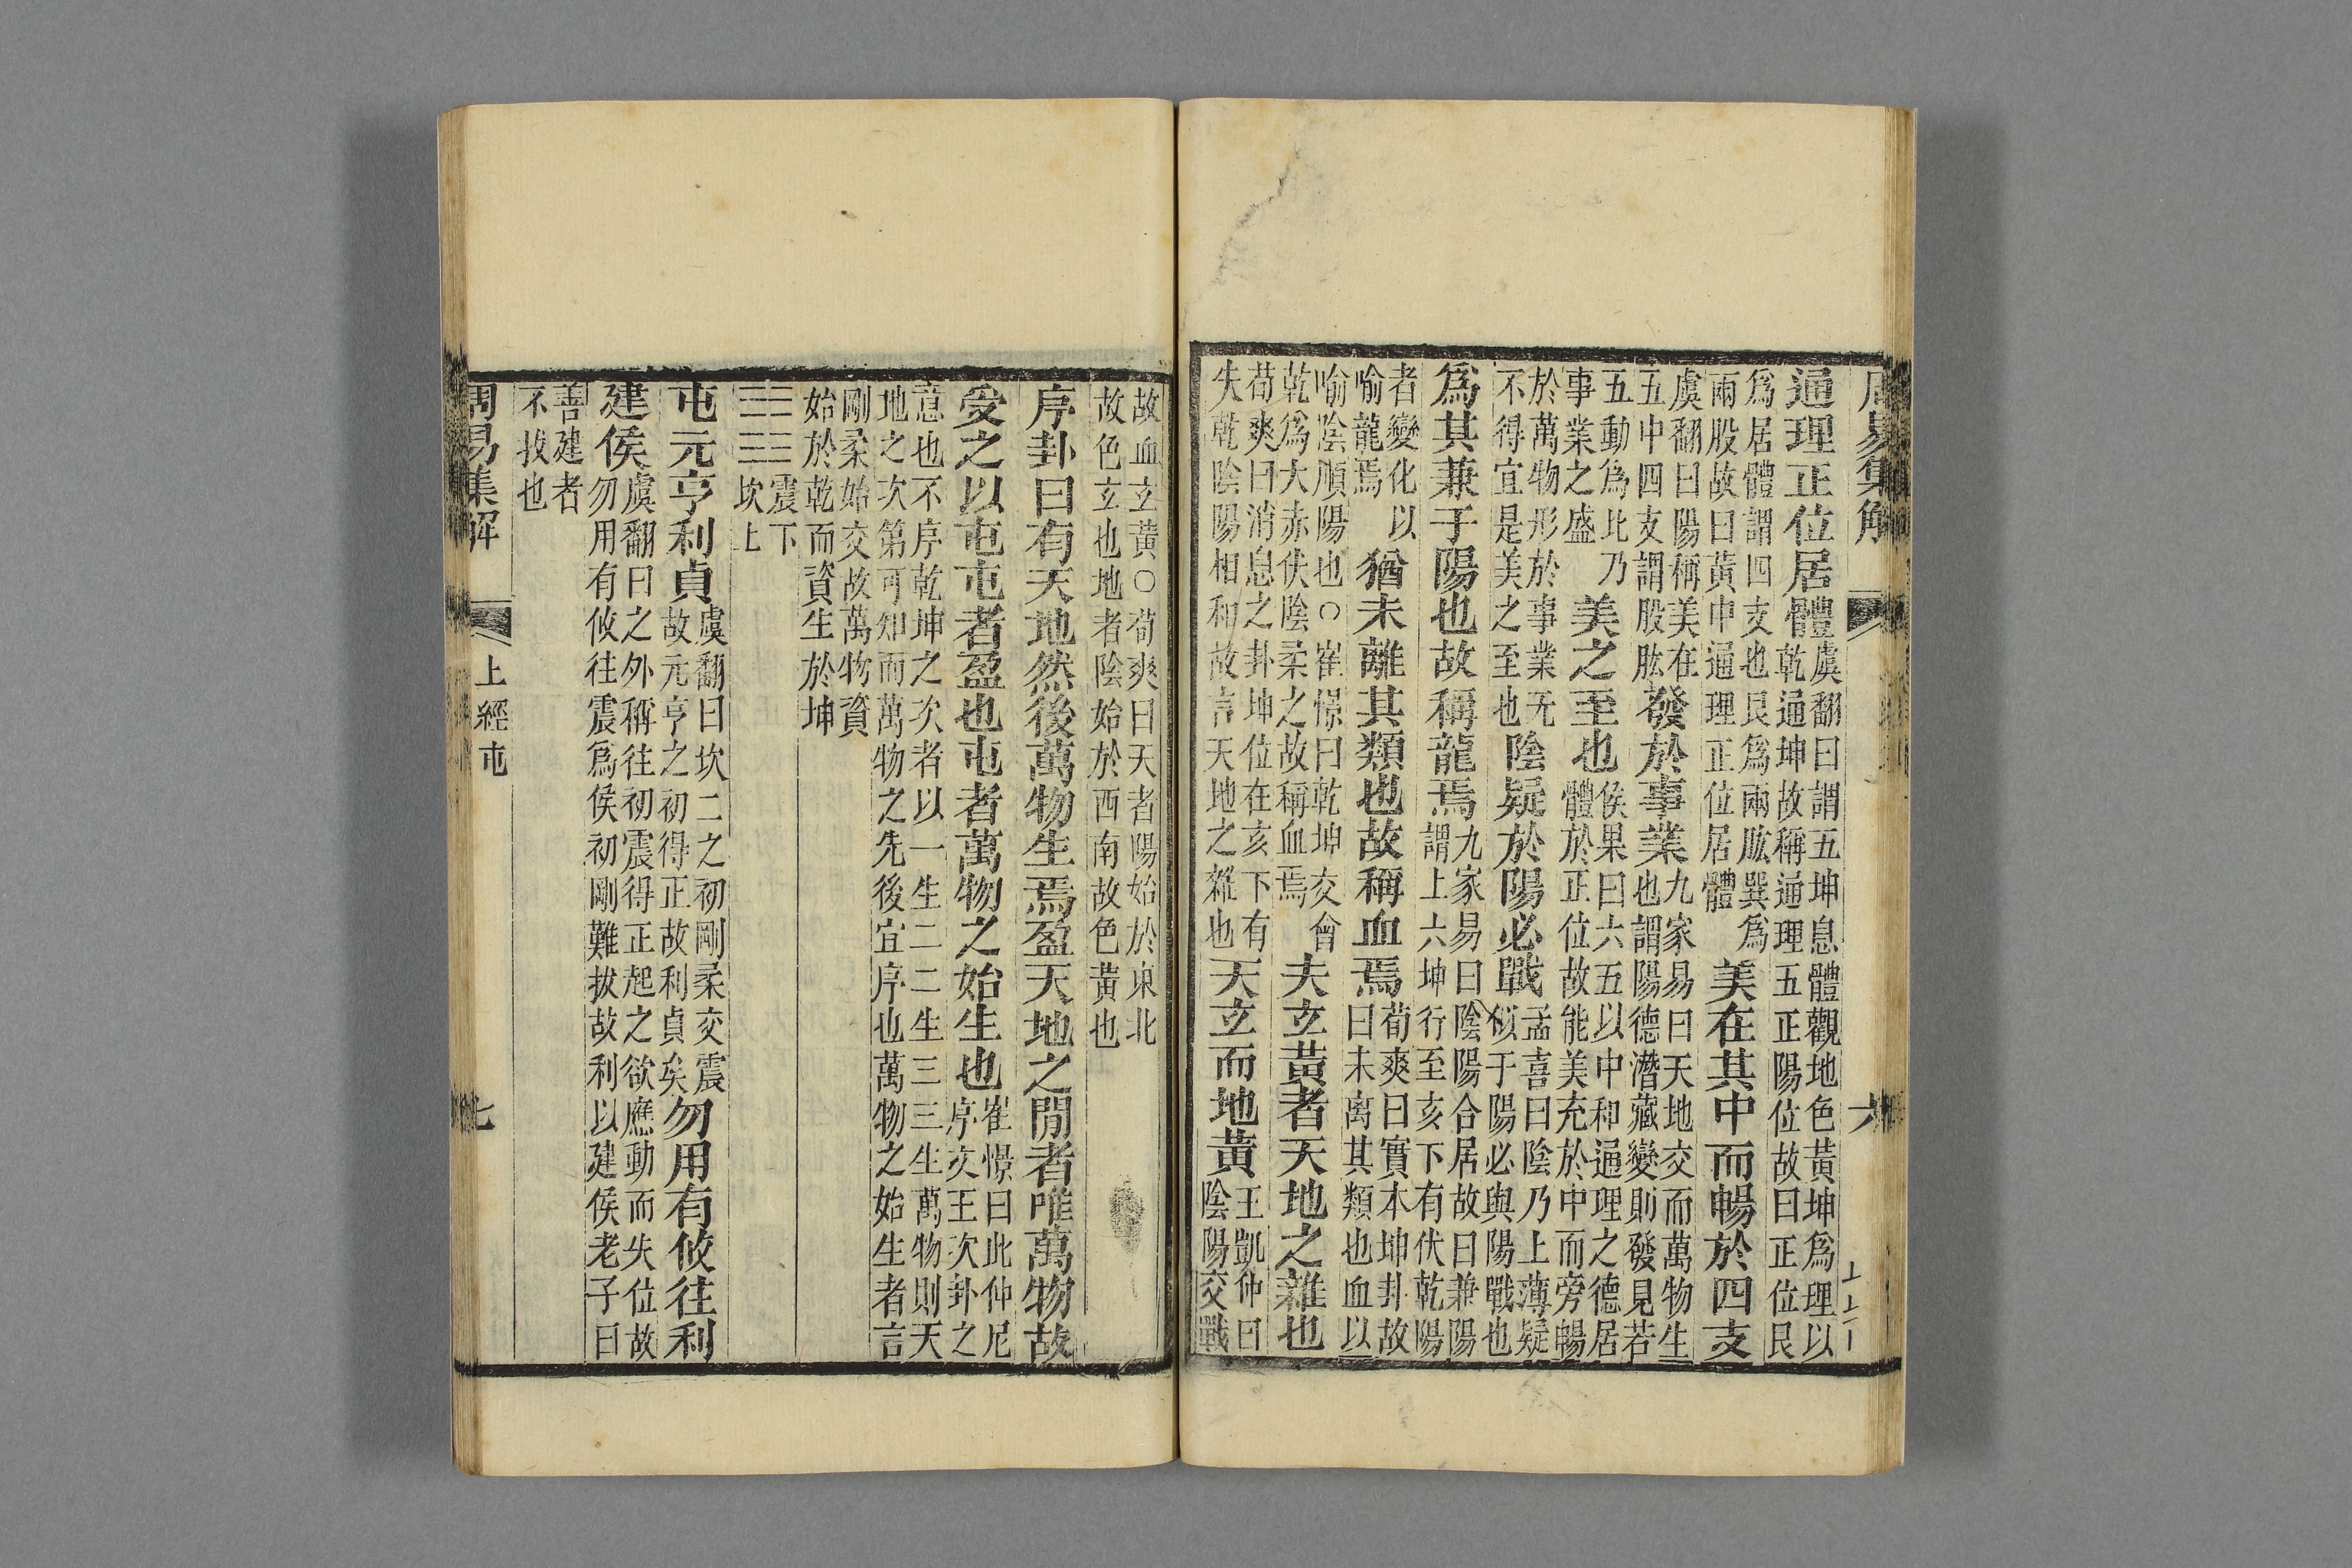 周易集解 六
通理正位居體虞翻曰謂五坤息體觀地色黃坤爲理以
乾通坤故稱通理五正陽位故曰正位艮
爲居體謂四支也艮爲兩肱巽爲
兩股故曰黃中通理正位居體美在其中而暢於四支
虞翻曰陽稱美在
五中四支謂股肱發於事業九家易曰天地交而萬物生
也謂陽德潛藏變則發見若
五動爲比乃
事業之盛美之至也侯果曰六五以中和通理之德居
體於正位故能美充於中而旁暢
於萬物形於事業无
不得宜是美之至也陰疑於陽必戰孟喜曰陰乃上薄疑
似于陽必與陽戰也
爲其兼于陽也故稱龍焉九家易曰陰陽合居故曰兼陽
謂上六坤行至亥下有伏乾陽
者變化以
喻龍焉猶未離其類也故稱血焉荀爽曰實本坤卦故
曰未离其類也血以
喻陰順陽也○崔憬曰乾坤交會
乾爲大赤伏陰柔之故稱血焉夫玄黃者天地之雜也
荀爽曰消息之卦坤位在亥下有
失乾陰陽相和故言天地之雜也天玄而地黃王凱仲曰
陰陽交戰
故血玄黃○荀爽曰天者陽始於東北
故色玄也地者陰始於西南故色黃也
序卦曰有天地然後萬物生焉盈天地之閒者唯萬物故
受之以屯屯者盈也屯者萬物之始生也崔憬曰此仲尼
序文王次卦之
意也不序乾坤之次者以一生二二生三三生萬物則天
地之次第可知而萬物之先後宜序也萬物之始生者言
剛柔始交故萬物資
始於乾而資生於坤
震下
坎上
屯元亨利貞虞翻曰坎二之初剛柔交震
故元亨之初得正故利貞矣勿用有攸往利
建侯虞翻曰之外稱往初震得正起之欲應動而失位故
勿用有攸往震爲侯初剛難拔故利以建侯老子曰
善建者
不拔也
周易集解 上經屯 七